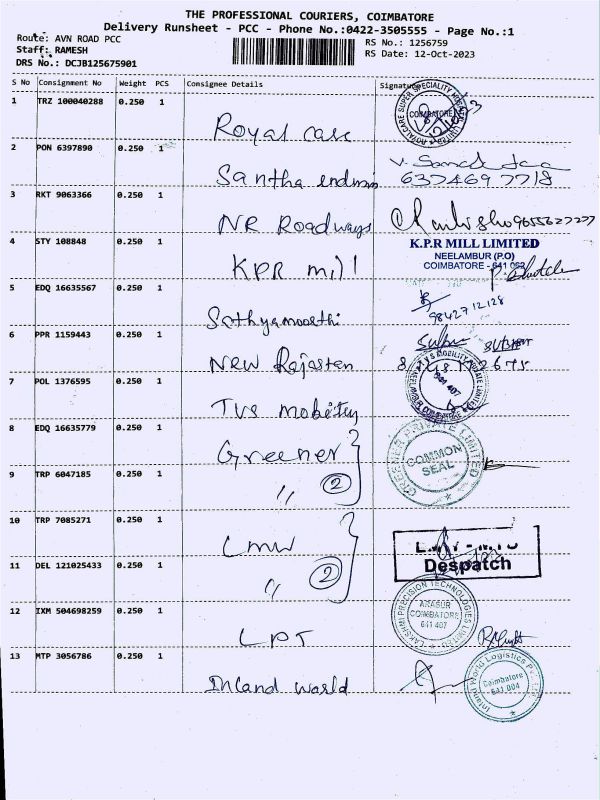 THE PROFESSIONAL COURIERS, COIMBATORE
Delivery Runsheet - PCC - Phone No.:0422-3505555 - Page No.:1
Route: AVN ROAD PCC
Staff: RAMESH
DRS No.: DCJB125675901
RS No.: 1256759
RS Date: 12-Oct-2023
S No Consignment No Weight PCS Consignee Details Signature
1 TRZ 100040288 0.250 1
Royal care
COIMBATORE
2 PON 6397890 0.250 1
Santha
6374697718
3 RKT 9063366 0.250 1
NR Roadways
4 STY 108848 0.250 1
KPR mill
K.P.R MILL LIMITED
NEELAMBUR (P.O)
COIMBATORE - 641 062
5 EDQ 16635567 0.250 1
Sathyamoorthi
98427 12128
6 PPR 1159443 0.250 1
New Rajastan
7 POL 1376595 0.250 1
TVS mobility
641 407
8 EDQ 16635779 0.250 1
Greener
GREENER PRIVATE LIMITED
COMMON
SEAL
9 TRP 6047185 0.250 1
" 2
10 TRP 7085271 0.250 1
LMW
Despatch
11 DEL 121025433 0.250 1
" 2
12 IXM 504698259 0.250 1
LPT
LAKSHMI PRECISION TECHNOLOGIES LIMITED
ARASUR
COIMBATORE
641 407
13 MTP 3056786 0.250 1
Inland world
Inland World Logistics Pvt. Ltd.
Coimbatore
641 004